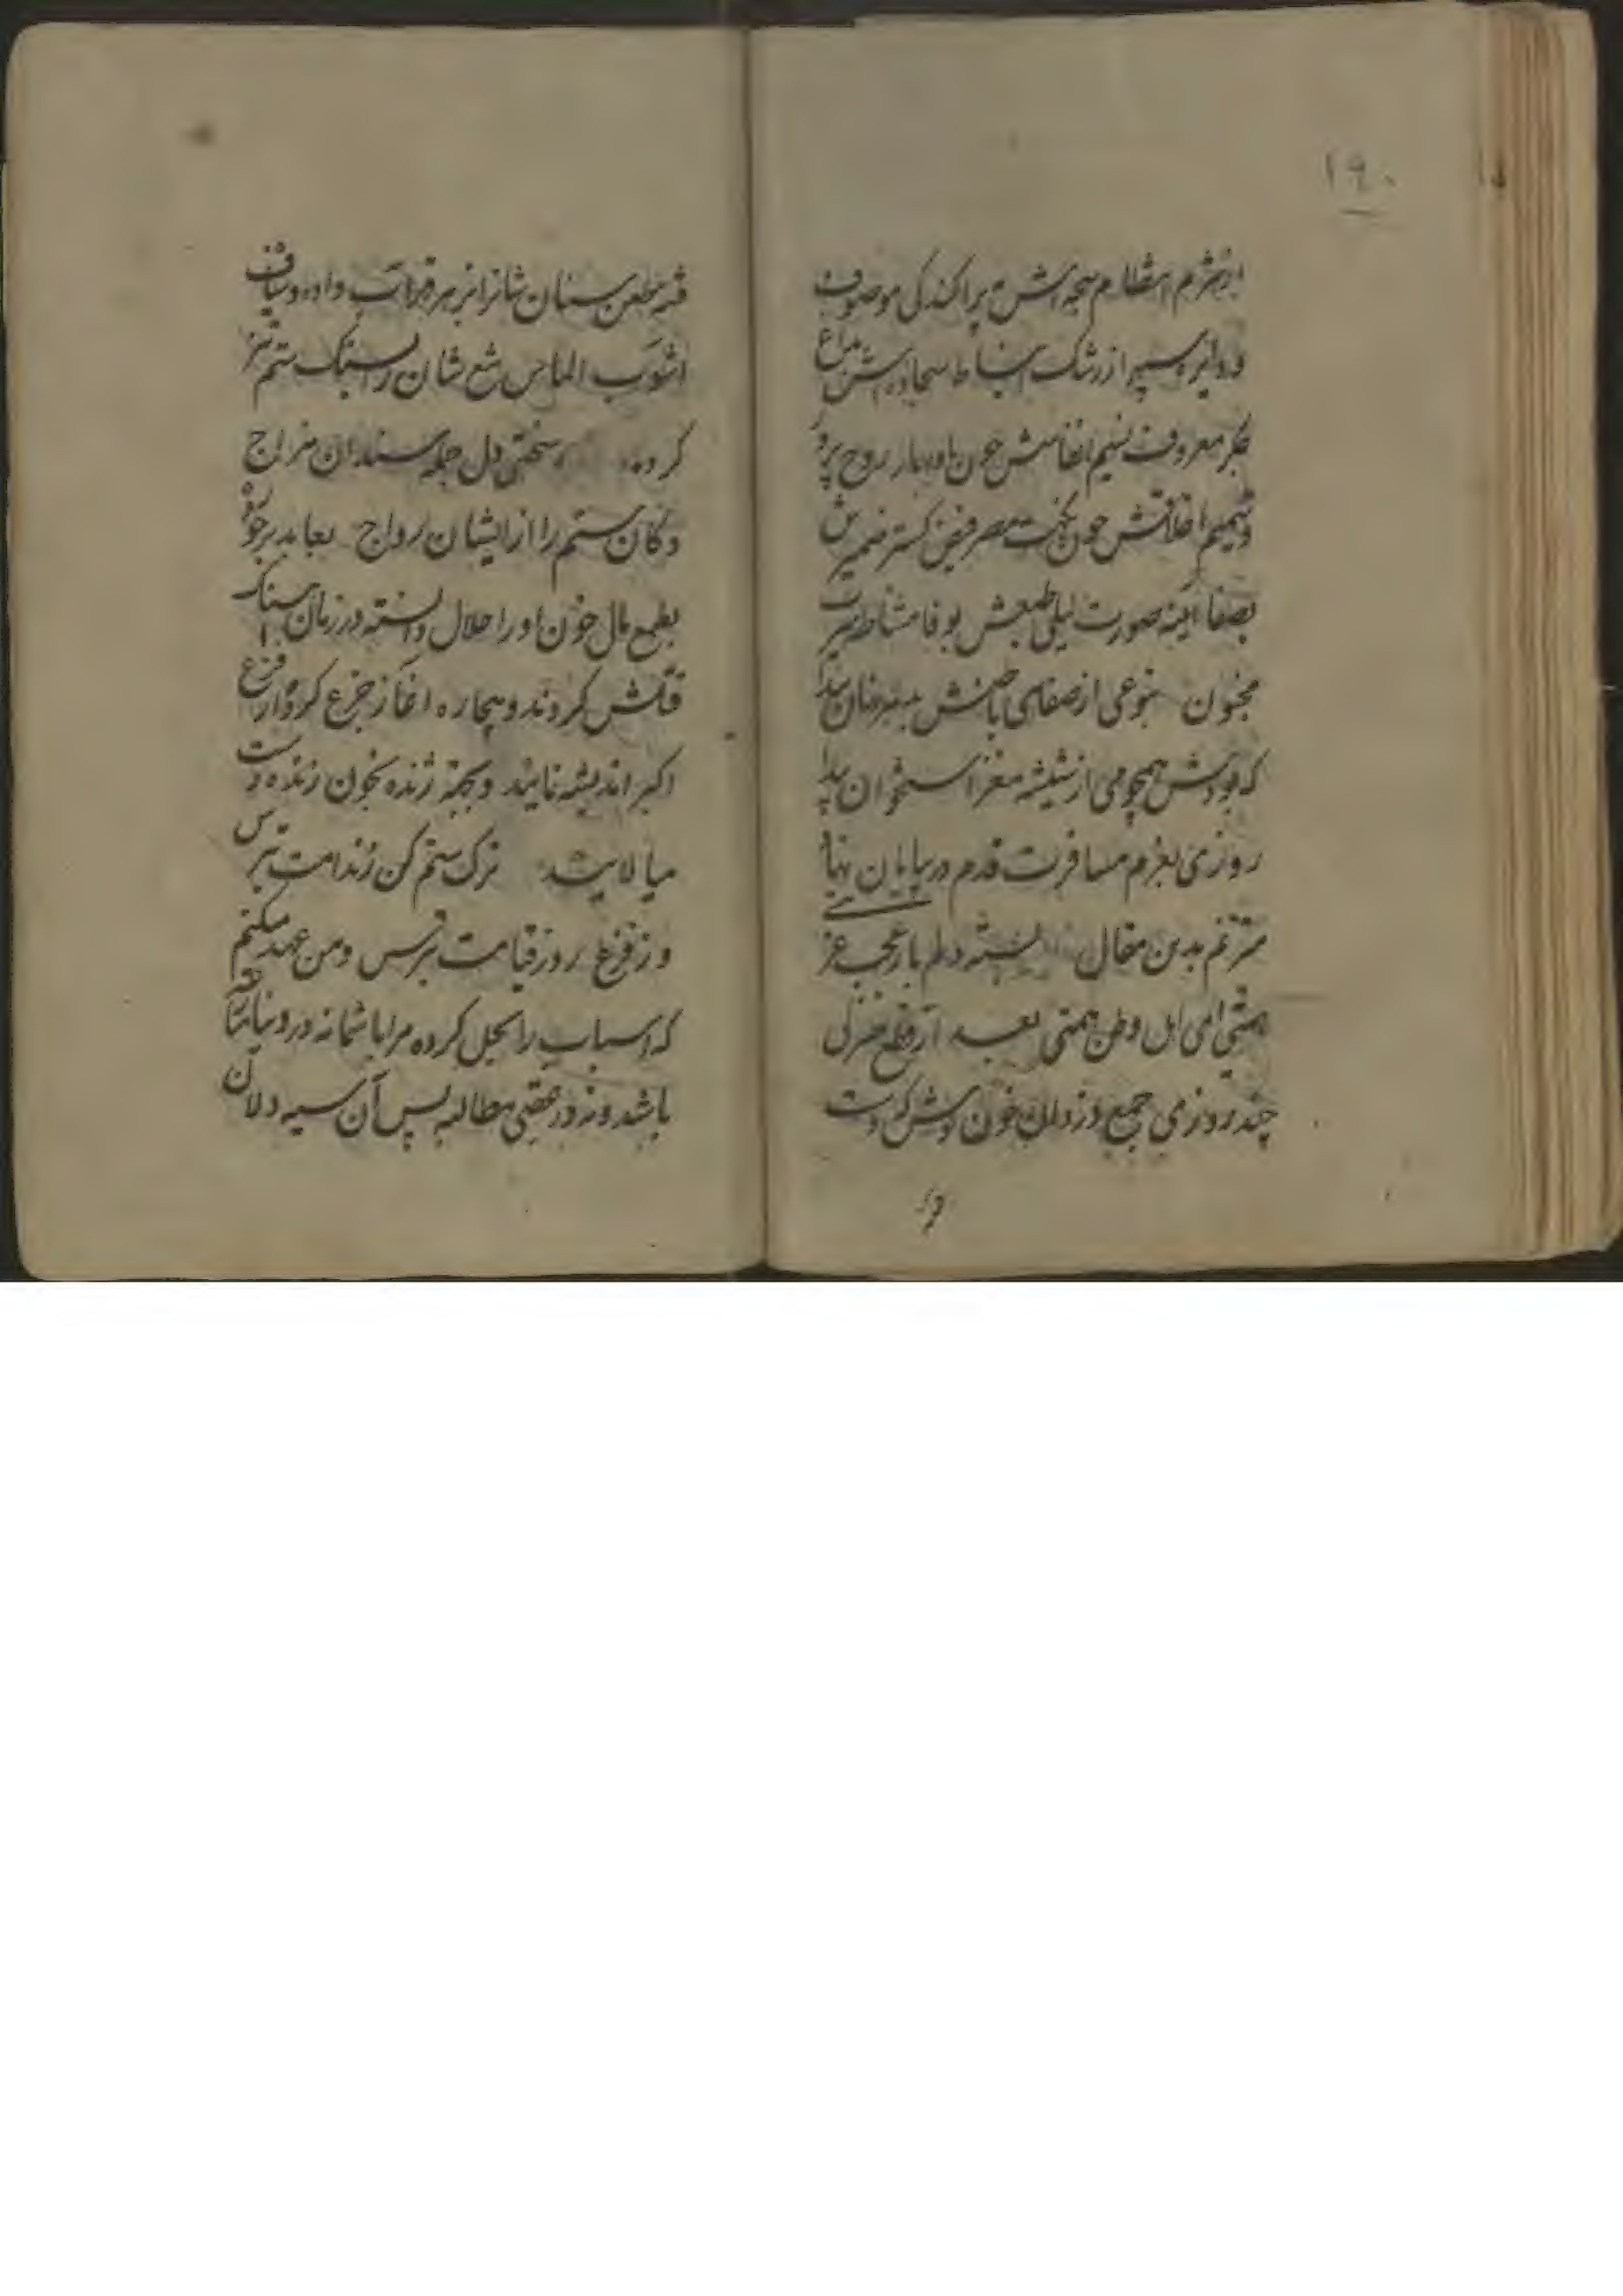 ۱۹۰
از شرم انتظام سبحه اش پراکندگی موصوف
و دایره سپهر از رشک انبساط سجاده اش بداغ
معروف نسیم انفاسش چون باد بهار روح پرور
و شمیم اخلاقش چون نکهت مصر فیض گستر ضمیرش
بصفا آینه صورت لیلی طبعش بوفا مشاطه سیرت
مجنون بنوعی از صفای باطنش بد نهان پیدا
که بودش همچو می از شیشه مغز استخوان پیدا
روزی بعزم مسافرت قدم در بیابان نهاد
مترنم بدین مقال بسته دلم بار عجب
همتی ای اهل وطن همتی بعد از قطع منزل
چند روزی جمع دزدان خون دست
فتنه بطعن سنان شانرا زهر قهر آب داده و سیاف
آشوب الماس تیغ شان را بسنگ ستم تیز
کرده سختی دل جمله سندان مزاج
دکان ستم را از ایشان رواج بعابد برخورد
بطمع مال خون او را حلال دانسته در زمان آهنگ
قتلش کردند و بیچاره آغاز جزع کرد و از فزع
اکبر اندیشه نمایند و بجهة ژنده بخون زنده دست
میالایید ترک ستم کن ز ندامت بترس
وز فزع روز قیامت بترس و من عهد میکنم
که اسباب را بحل کرده مرا با شما نه در دنیا مناقشه
باشد و نه در عقبی مطالبه پس آن سیه دلان